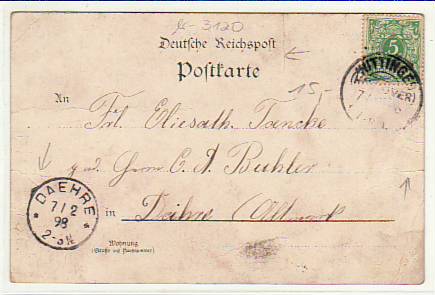 fc-3120
Deutsche Reichspost
Postkarte
5
WITTINGEN
(HANNOVER)
7
15,-
An
Frl. Elisabeth Tancke
Herrn C. A. Buhler
in Dähre (Altmark)
DAEHRE
7/2
98
2-3N
Wohnung
(Straße und Hausnummer)